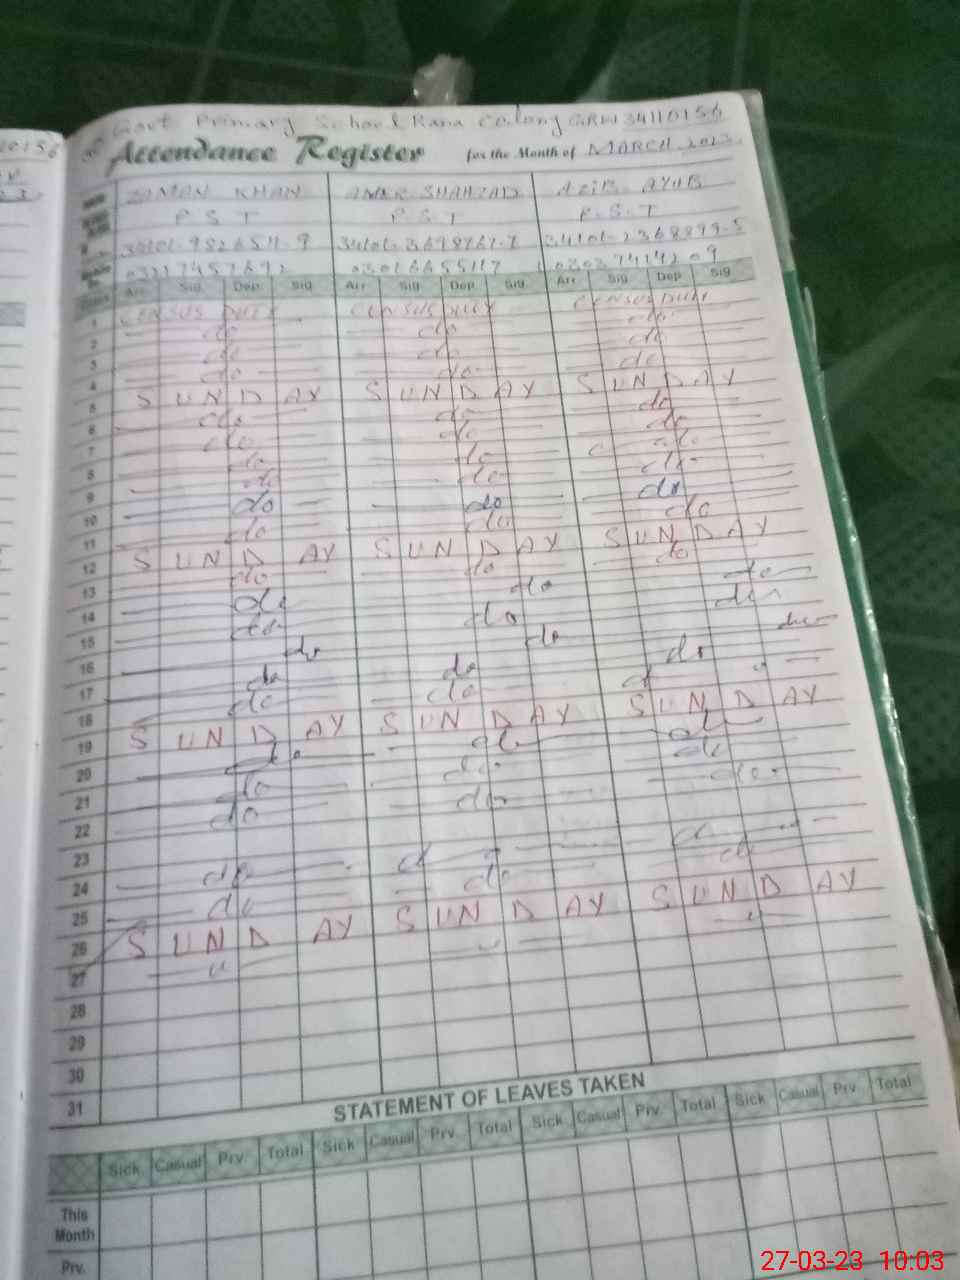 Govt Primary School Rana Colony GRW 34110156
Attendance Register for the Month of MARCH 2023
ZAMAN KHAN AMER SHAHZAD AZIB AYUB
P S T P.S.T P.S.T
34101-9826511-9 34101-3698767-7 34101-2368899-5
03217457692 03016655117 03037414209
Arr Sig. Dep. Sig Arr Sig. Dep Sig. Arr Sig. Dep Sig
1 CENSUS DUTY CENSUS DUTY CENSUS DUTY
2 do do do
3 do do do
4 do do do
5 SUNDAY SUNDAY SUNDAY
6 do do do
7 do do do
8 do do do
9 do do do
10 do do do
11 do do do
12 SUNDAY SUNDAY SUNDAY
13 do do do
14 do do do
15 do do do
16 do do do
17 do do do
18 do do
19 SUNDAY SUNDAY SUNDAY
20 do do do
21 do do do
22 do do do
23
24 do do
25 do do do
26 SUNDAY SUNDAY SUNDAY
27 " " "
28
29
30
31
STATEMENT OF LEAVES TAKEN
Sick Casual Prv. Total Sick Casual Prv. Total Sick Casual Prv. Total Sick Casual Prv. Total
This Month
Prv.
27-03-23 10:03